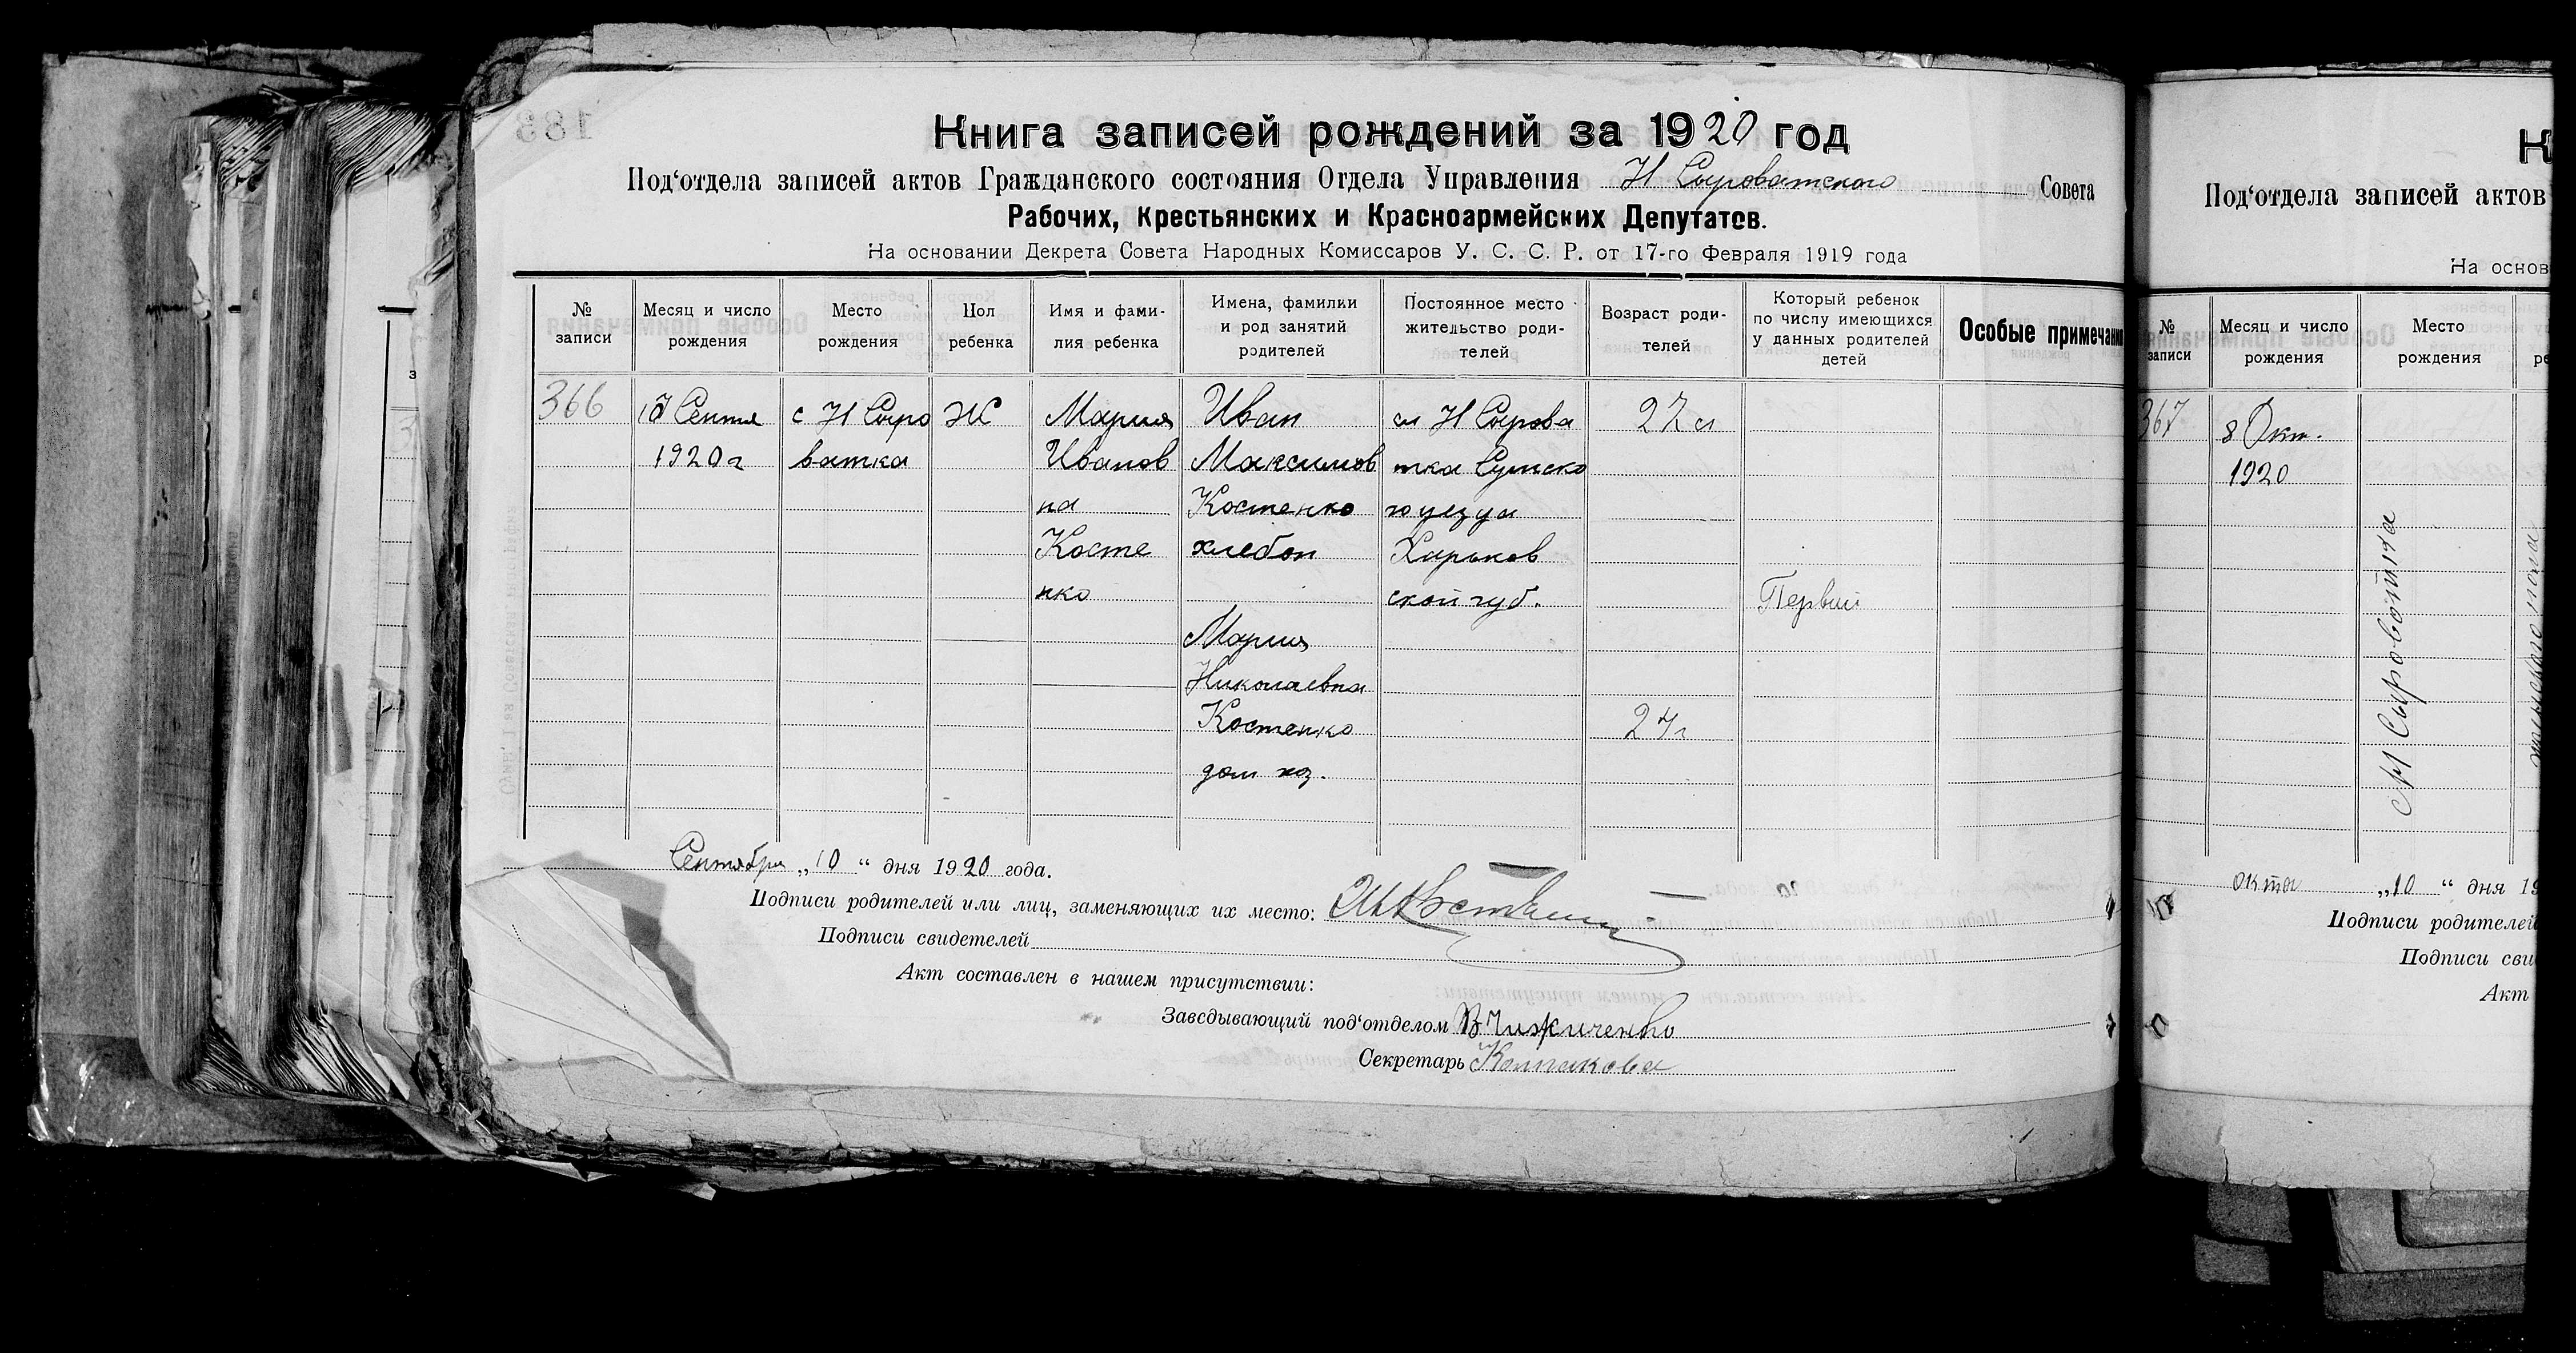 Книга записей рождений за 1920 год
Под‘отдела записей актов Гражданского состояния Отдела Управления Н Сыроватского Совета
Рабочих, Крестьянских и Красноармейских Депутатов.
На основании Декрета Совета Народных Комиссаров У. С. С. Р. от 17-го Февраля 1919 года
№ записи
Месяц и число рождения
Место рождения
Пол ребенка
Имя и фами-
лия ребенка
Имена, фамилии
и род занятий
родителей
Постоянное место
жительство роди-
телей
Возраст роди-
телей
Который ребенок
по числу имеющихся
у данных родителей
детей
Особые примечан
366
Сентя
1920 г
с Н Сыро
ватка
Ж
Мария
Иванов
на
Косте
нко
Иван
Максимов
Костенко
хлебоп
Мария
Николаевна
Костенко
дом хоз.
сл Н Сырова
тка Сумско
го уезда
Харьков
ской губ.
27 л
24 г
Первый
Сентября „10“ дня 1920 года.
Подписи родителей или лиц, заменяющих их место:
Подписи свидетелей
Акт составлен в нашем присутствии:
Заведывающий под‘отделом В Чижиченко
Секретарь Колпакова
К
Под‘отдела записей актов
На основ
№ записи
Месяц и число рождения
Место рождения
367
8 Окт.
1920
Н Сыроватка
женского пола
окта „10“ дня 19
Подписи родителей
Подписи сви
Акт